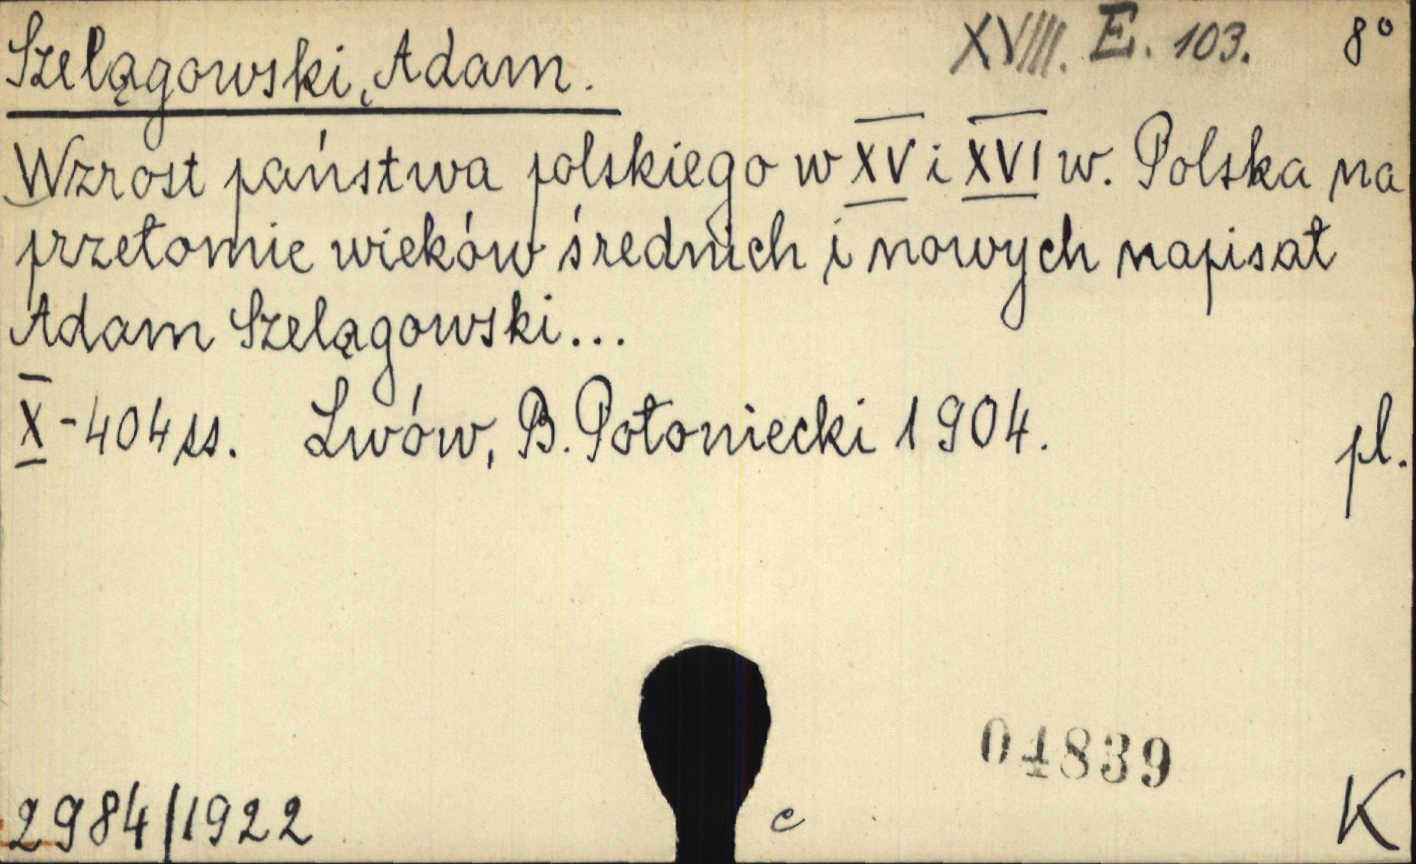 Szelągowski, Adam. XVIIII. E. 103. 8°
Wzrost państwa polskiego w XV i XVI w. Polska na
przełomie wieków średnich i nowych napisał
Adam Szelągowski...
X-404 ss. Lwów, B. Połoniecki 1904. pl.
04839
2984/1922 c K